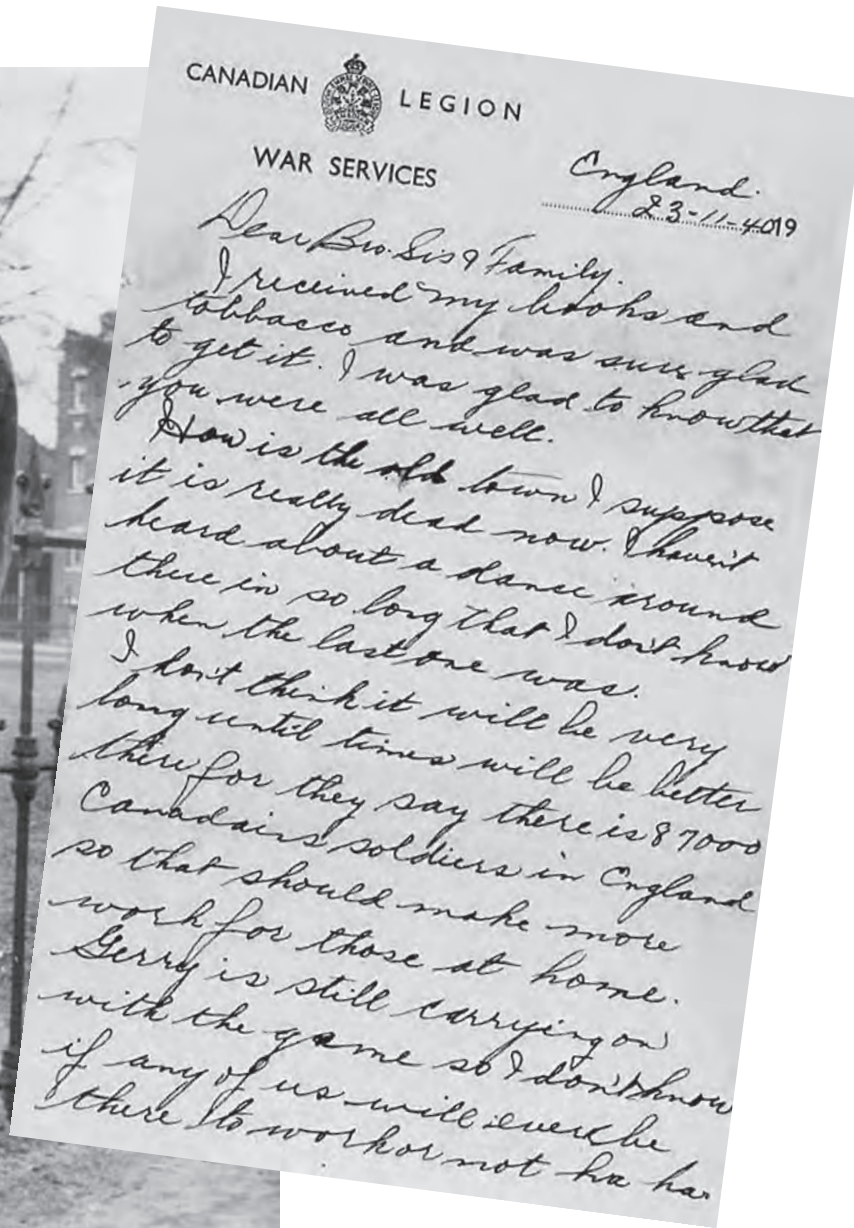 CANADIAN LEGION
WAR SERVICES
England.
23-11-4019
Dear Bro. Sis & Family.
I received my books and
tobbacco and was sure glad
to get it. I was glad to know that
you were all well.
How is the old town I suppose
it is really dead now. I haven't
heard about a dance around
there in so long that I don't know
when the last one was.
I don't think it will be very
long until times will be better
there for they say there is 87000
Canadains soldiers in England
so that should make more
work for those at home.
Gerry is still carrying on
with the game so I don't know
if any of us will ever be
there to work or not ha ha.